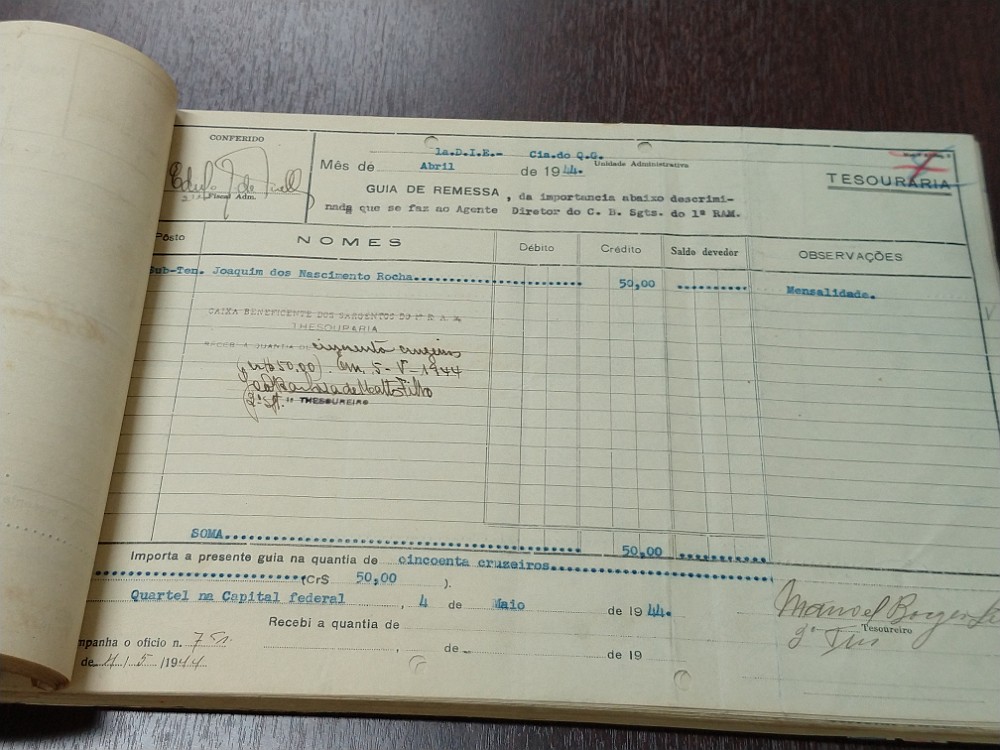 CONFERIDO
Fiscal Adm.
1a.D.I.E.- Cia.do Q.G.
Unidade Administrativa
Mês de Abril de 1944.
TESOURARIA
GUIA DE REMESSA, da importancia abaixo descrimi-
nada que se faz ao Agente Diretor do C. B. Sgts. do 1º RAM.
Posto NOMES Débito Crédito Saldo devedor OBSERVAÇÕES
Sub-Ten. Joaquim dos Nascimento Rocha.................... 50,00 ......... Mensalidade.
CAIXA BENEFICENTE DOS SARGENTOS DO 1º R A M
THESOURARIA
RECEBI A QUANTIA DE cinquenta cruzeiros
(cr$ 50,00). Em, 5-V-1944
2º Sgt. THESOUREIRO
SOMA.................... 50,00 .........
Importa a presente guia na quantia de cincoenta cruzeiros....................
....................(Cr$ 50,00 ).
Quartel na Capital federal, 4 de Maio de 1944.
Manoel Borges
Tesoureiro
Recebi a quantia de
mpanha o oficio n. 751
, de de 19
de 4/5/1944